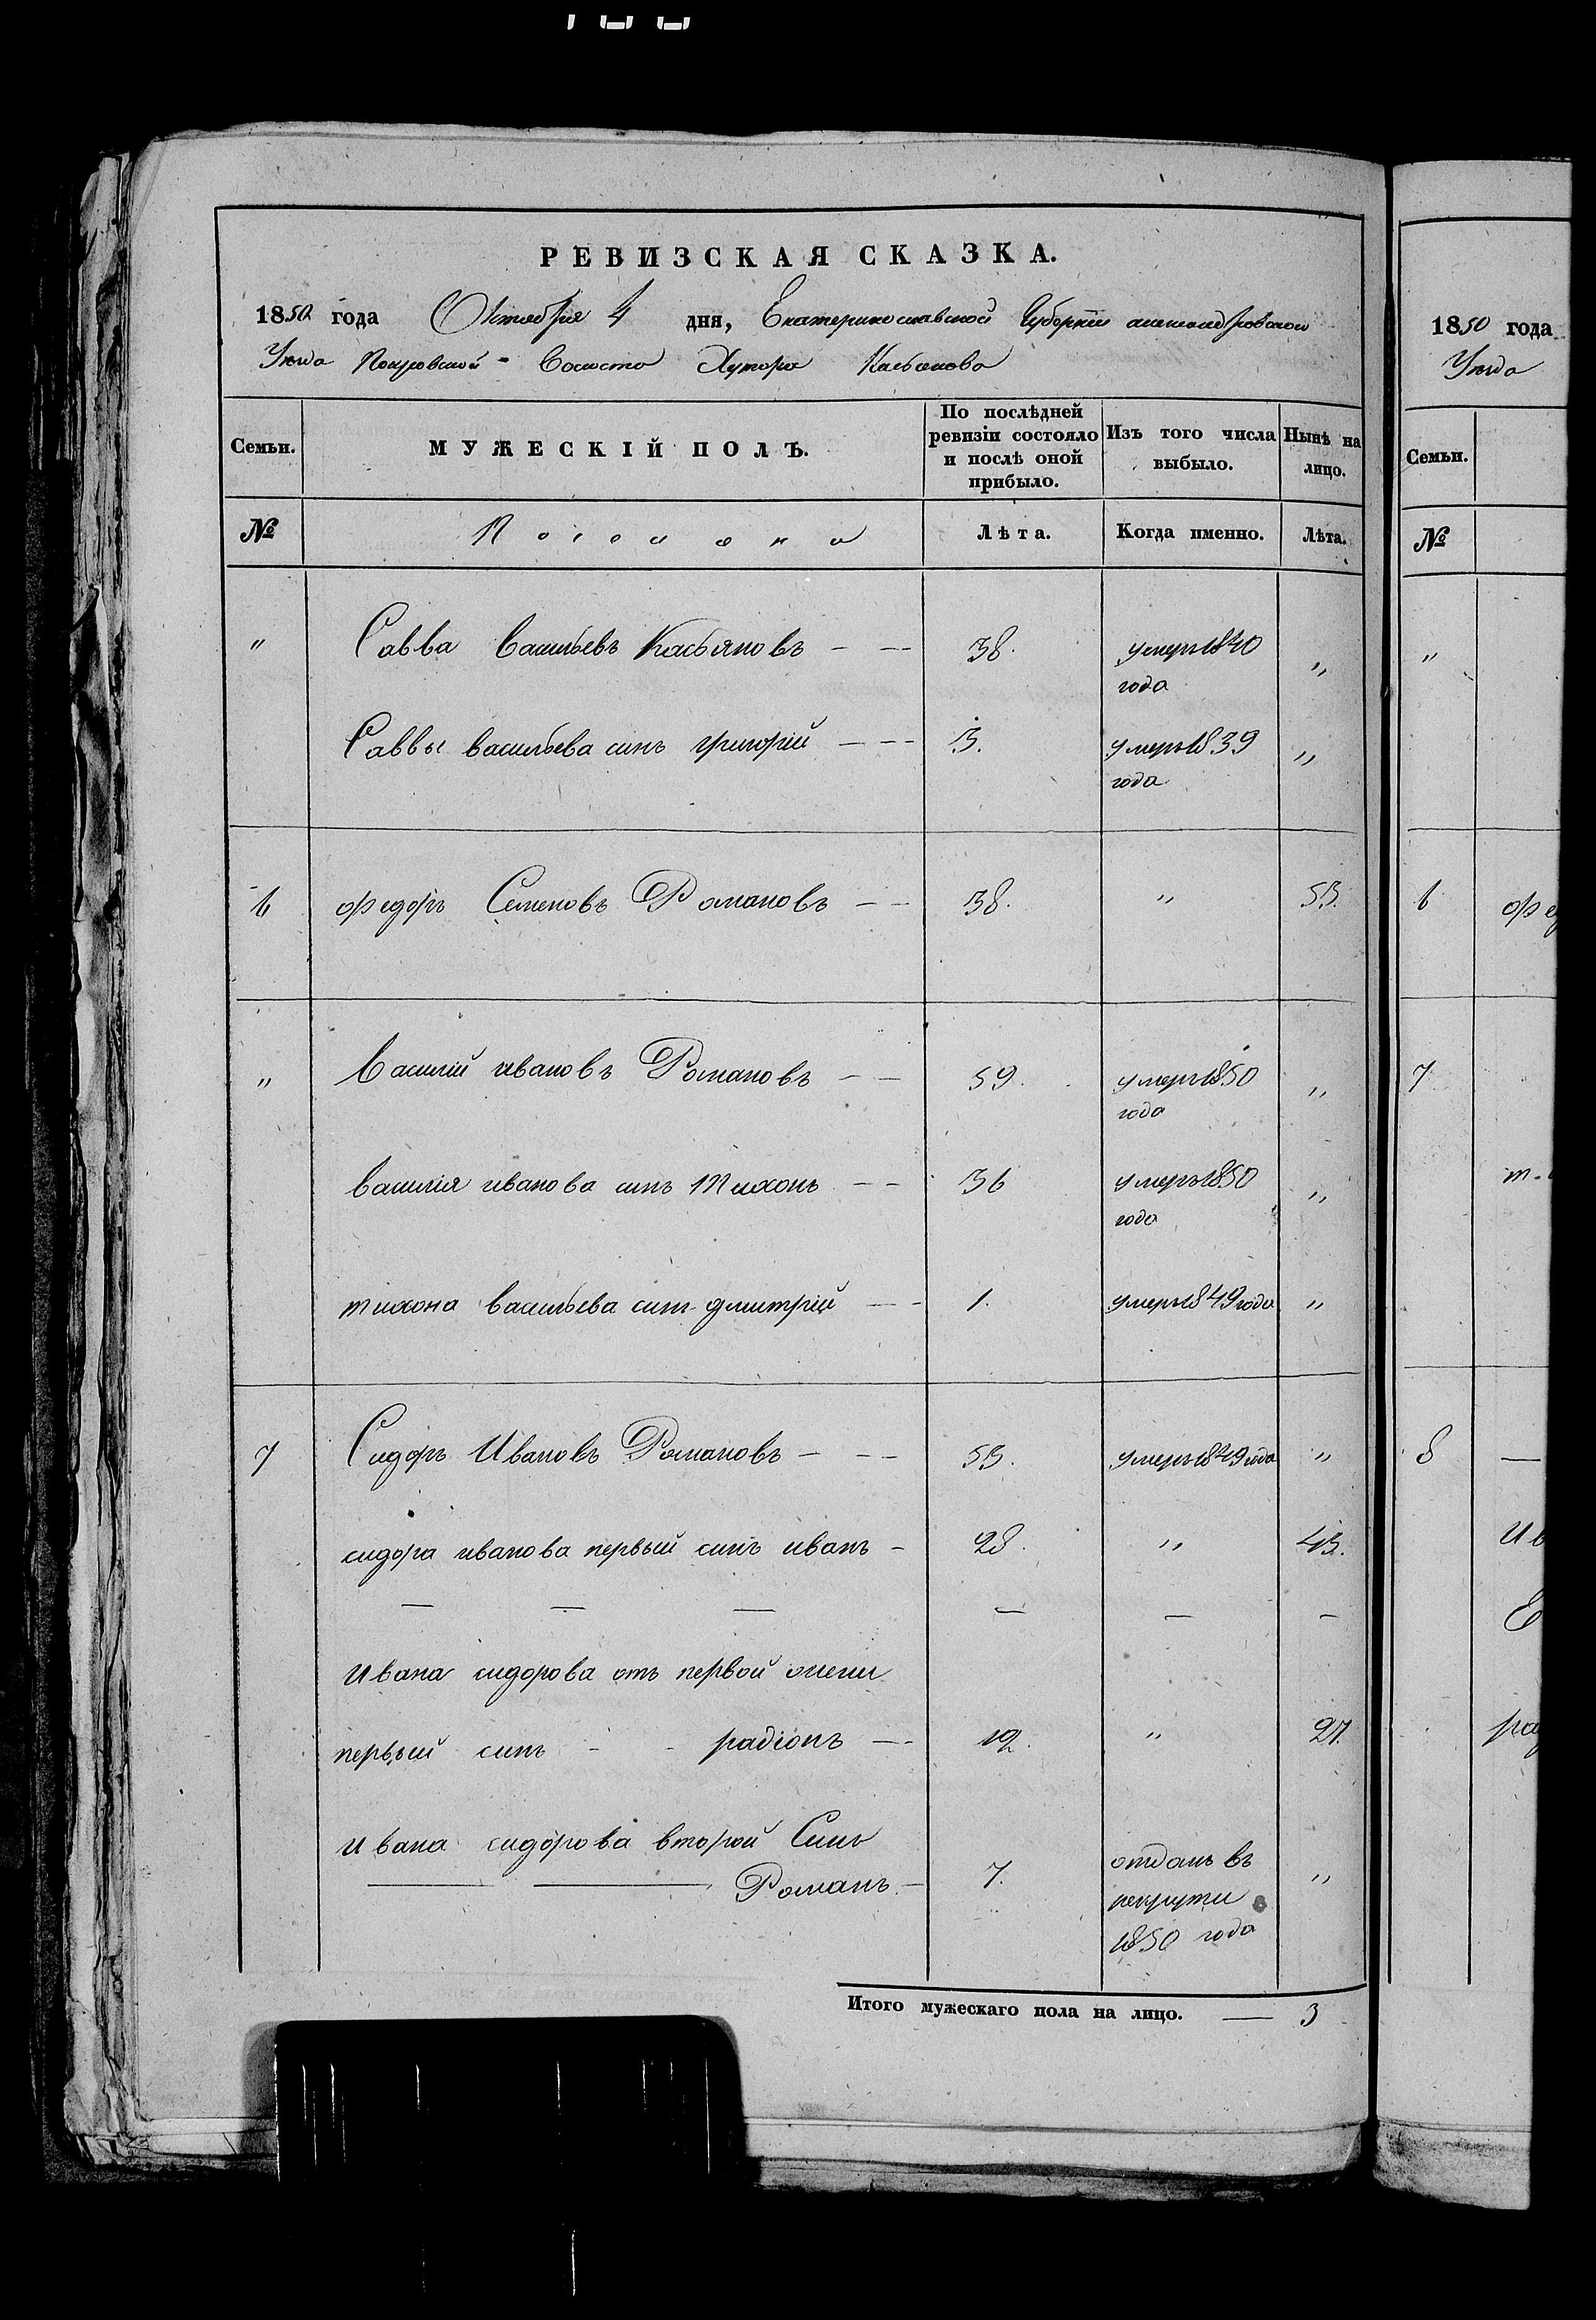 РЕВИЗСКАЯ СКАЗКА.
1850 года Октября 4 дня, Екатеринославской Губернии александровского
Уезда Покровской Волости Хутора Касьянова
Семьи. МУЖЕСКІЙ ПОЛЪ. По послѣдней ревизіи состояло и послѣ оной прибыло. Изъ того числа выбыло. Нынѣ на лицо.
№ Лѣта. Когда именно. Лѣта.
" Савва Васильевъ Касьяновъ — — 38. умеръ 1840 года "
Саввы васильева синъ григорій — — 3. умеръ 1839 года "
6 федоръ Семеновъ Романовъ — — 38. " 53.
" Василій ивановъ Романовъ — — 59. умеръ 1850 года "
василія иванова синъ Тихонъ — — 36 умеръ 1850 года "
тихона васильева синъ дмитрій — — 1. умеръ 1849 года "
7 Сидоръ Ивановъ Романовъ — — — 53. умеръ 1849 года "
сидора иванова первый синъ иванъ — 28. " 43.
— — — — — —
Ивана сидорова отъ первой жени
первый синъ - - радіонъ — — 12. " 27.
ивана сидорова второй Синъ
— — Романъ — 7. отданъ въ рекрути 1850 года "
Итого мужескаго пола на лицо. — 3
1850 года
Уезда
Семьи.
№
"
6 фед
7
т.
8 —
Ив
Е
рад